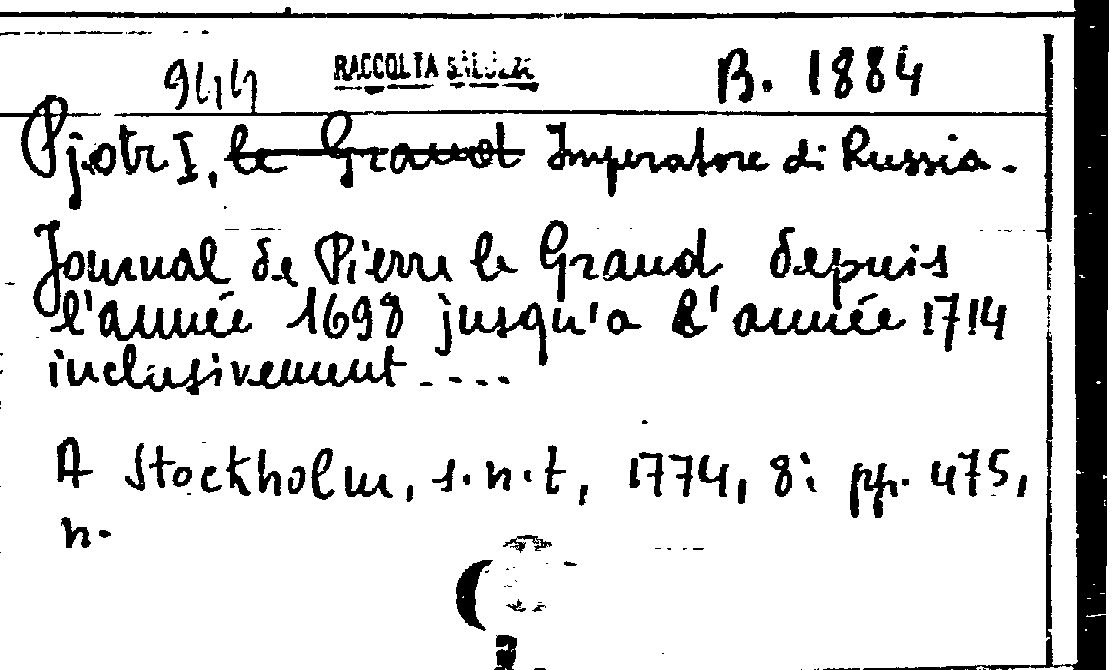 944 RACCOLTA SALUZZO B. 1884
Pjotr I, le Grand Imperatore di Russia.
Journal de Pierre le Grand depuis
l'année 1698 jusqu'a l'année 1714
inclusivement ....
A Stockholm, s.n.t, 1774, 8: pp. 475,
n.